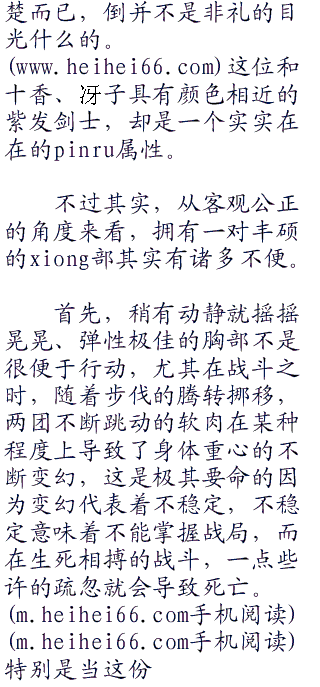 楚而已，倒并不是非礼的目
光什么的。
(www.heihei66.com)这位和
十香、冴子具有颜色相近的
紫发剑士，却是一个实实在
在的pinru属性。
不过其实，从客观公正
的角度来看，拥有一对丰硕
的xiong部其实有诸多不便。
首先，稍有动静就摇摇
晃晃、弹性极佳的胸部不是
很便于行动，尤其在战斗之
时，随着步伐的腾转挪移，
两团不断跳动的软肉在某种
程度上导致了身体重心的不
断变幻，这是极其要命的因
为变幻代表着不稳定，不稳
定意味着不能掌握战局，而
在生死相搏的战斗，一点些
许的疏忽就会导致死亡。
(m.heihei66.com手机阅读)
(m.heihei66.com手机阅读)
特别是当这份